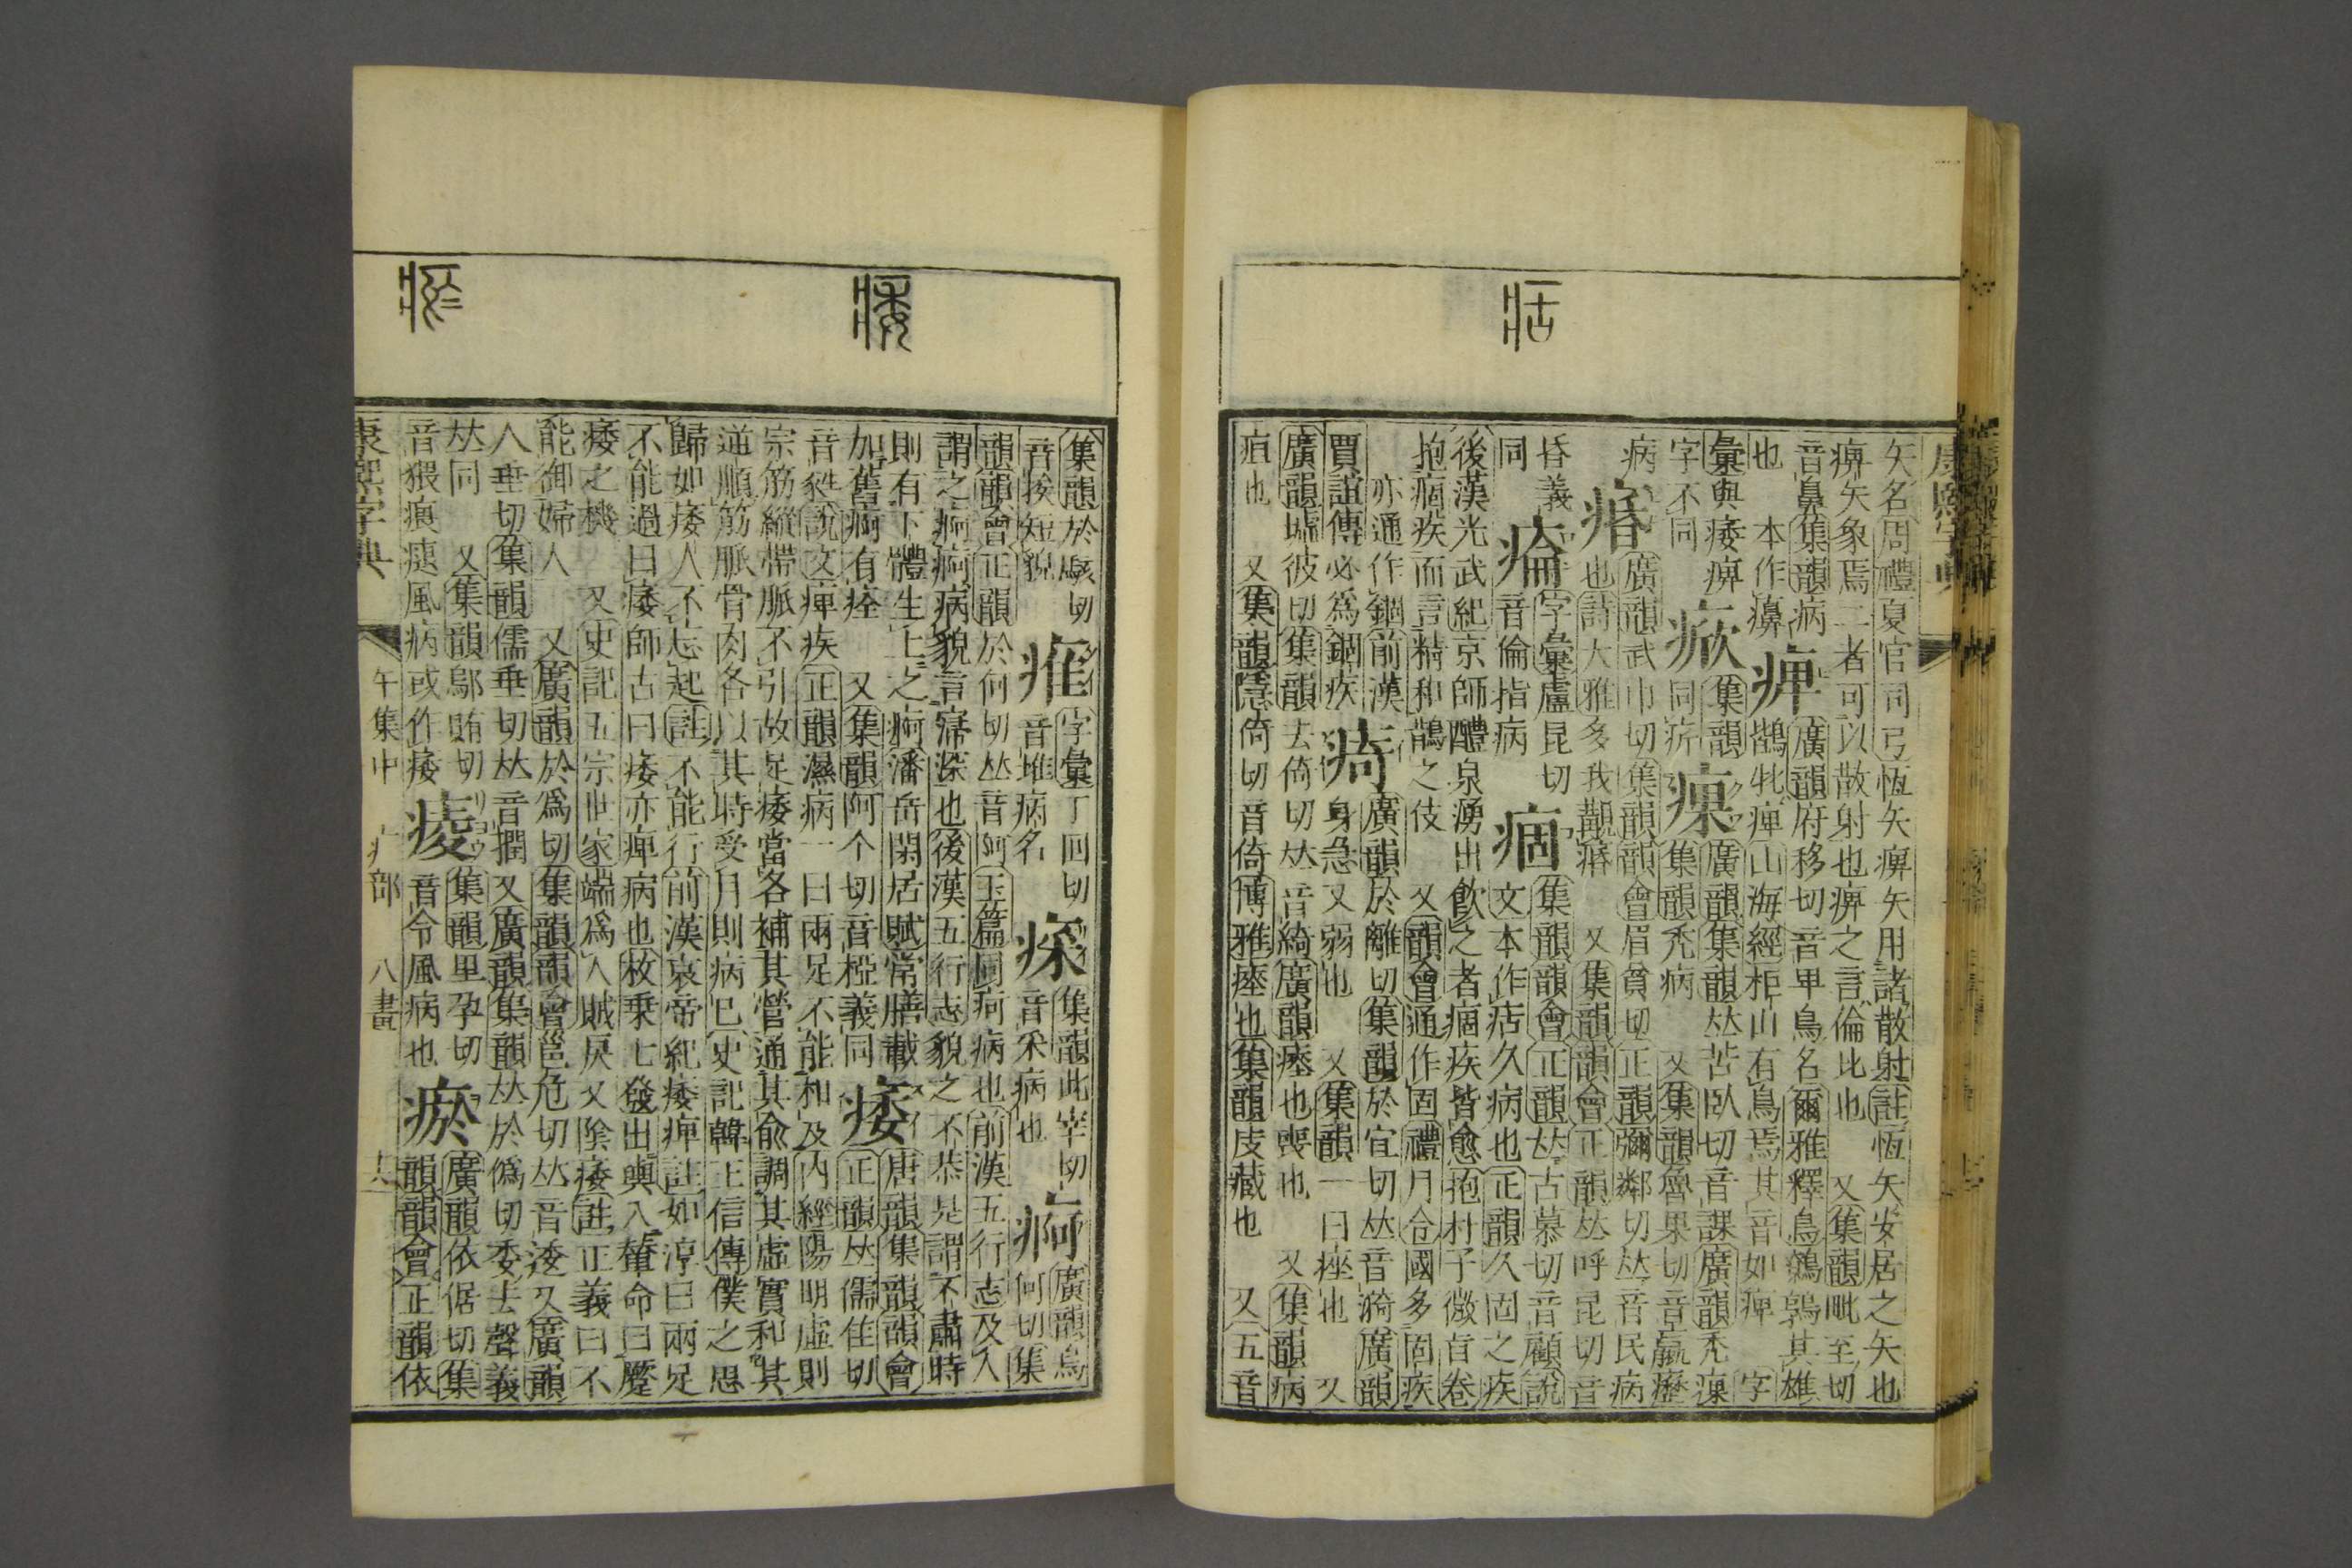 矢名周禮夏官司弓恆矢痹矢用諸散射註恆矢安居之矢也
痹矢象焉二者可以散射也痹之言倫比也 又集韻毗至切
音鼻集韻病 廣韻府移切音𤰞鳥名爾雅釋鳥鷯鶉其雄
也 本作癟 痺 鵲牝痺山海經柜山有鳥焉其音如痺 字
彙與痿痹 集韻 廣韻集韻𠀤苦臥切音課廣韻禿瘰
字不同 㾙 同疥 瘰 集韻禿病 又集韻魯果切音羸癧
病 廣韻武巾切集韻韻會眉貧切正韻彌鄰切𠀤音民病
痻 也詩大雅多我覯痻 又集韻韻會正韻𠀤呼昆切音
昏義 字彙盧昆切 集韻韻會正韻𠀤古慕切音顧說
同 𤷕 音倫指病 痼 文本作㽽久病也正韻久固之疾
後漢光武紀京師醴泉湧出飲之者痼疾皆愈抱朴子微旨卷
抱痼疾而言精和鵲之伎 又韻會通作固禮月令國多固疾
亦通作錮前漢 廣韻於離切集韻於宜切𠀤音漪廣韻
賈誼傳必爲錮疾 㾨 身急又弱也 又集韻一曰痤也 又
廣韻墟彼切集韻去倚切𠀤音綺廣韻瘞也喪也 又集韻病
疽也 又集韻隱倚切音倚博雅瘞也集韻庋藏也 又五音
集韻於駭切 字彙丁回切 集韻此宰切 廣韻烏
音挨短貌 㾯 音堆病名 㾋 音采病也 痾 何切集
韻韻會正韻於何切𠀤音阿玉篇同疴病也前漢五行志及人
謂之痾痾病貌言寖深也後漢五行志貌之不恭是謂不肅時
則有下體生上之痾潘岳閑居賦常膳載 唐韻集韻韻會
加舊痾有痊 又集韻阿个切音椏義同 痿 正韻𠀤儒佳切
音甤說文痺疾正韻濕病一曰兩足不能相及內經陽明虛則
宗筋縱帶脈不引故足痿當各補其營通其兪調其虛實和其
逆順筋脈骨肉各以其時受月則病已史記韓王信傳僕之思
歸如痿人不忘起註不能行前漢哀帝紀痿痺註如淳曰兩足
不能過曰痿師古曰痿亦痺病也枚乘七發出輿入輦命曰蹷
痿之機 又史記五宗世家端爲人賊戾又陰痿註正義曰不
能御婦人 又廣韻於爲切集韻韻會邕危切𠀤音逶又廣韻
人垂切集韻儒垂切𠀤音撋又廣韻集韻𠀤於僞切委去聲義
𠀤同 又集韻鄔賄切 集韻里孕切 廣韻依倨切集
音猥㾯㿗風病或作痿 㾊 音令風病也 瘀 韻韻會正韻依
康熙字典 午集中 疒部 八畫